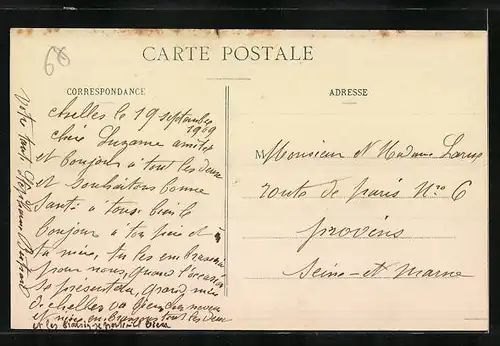 60
CARTE POSTALE
CORRESPONDANCE
ADRESSE
chelles le 19 septembre
1909
chère Suzanne amitiés
et bonjour a tout les deux
et souhaitons bonne
santé a tous bien le
bonjour a ton père et a
ta mère, tu les embrassera
pour nous, quand l'occasion
se présentera, grand mère
de chelles va bien
et mère embrassons tout les deux
et les cousins se portent bien
Votre tante
M Monsieur et Madame Larue
route de paris Nro 6
provins
Seine-et Marne